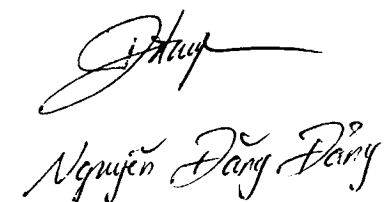 Nguyễn Đăng Đảng